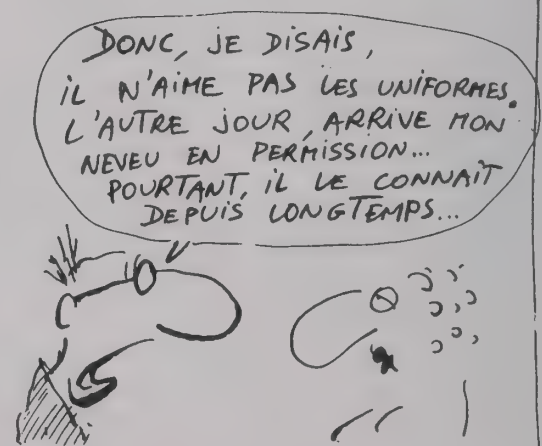 DONC, JE DISAIS,
IL N'AIME PAS LES UNIFORMES.
L'AUTRE JOUR, ARRIVE MON
NEVEU EN PERMISSION...
POURTANT, IL LE CONNAIT
DEPUIS LONGTEMPS...